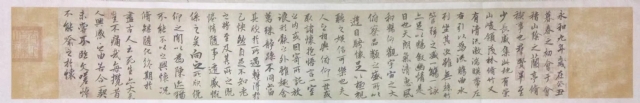 永和九年歲在癸丑
暮春之初會于會
稽山陰之蘭亭脩
禊事也群賢畢至
少長咸集此地有崇
山峻領茂林脩竹又
有清流激湍映帶左
右引以為流觴曲水
列坐其次雖無絲竹
管絃之盛一觴一詠
亦足以暢敘幽情是
日也天朗氣清惠風
和暢仰觀宇宙之大
俯察品類之盛所以
遊目騁懷足以極視
聽之娛信可樂也夫
人之相與俯仰一世或
取諸懷抱悟言一室之
內或因寄所託放
浪形骸之外雖趣舍
萬殊靜躁不同當
其欣於所遇輙得於
己快然自足不知老
之將至及其所之既
惓情隨事遷感慨
係之矣向之所欣俛
仰之間以為陳迹猶
不能不以之興懷況
脩短隨化終期於
盡古人云死生亦大矣
豈不痛哉每攬昔
人興感之由若合一契
未嘗不臨文嗟悼
不能喻之於懷